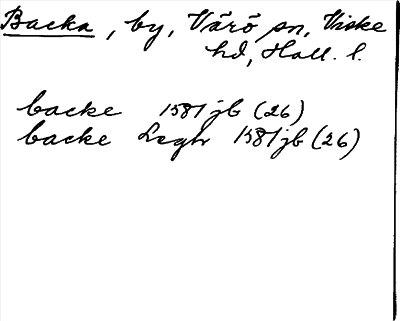 Backa, by, Värö sn, Viske
hd, Hall. l.
backe 1581 jb (26)
backe Legr 1581 jb (26)